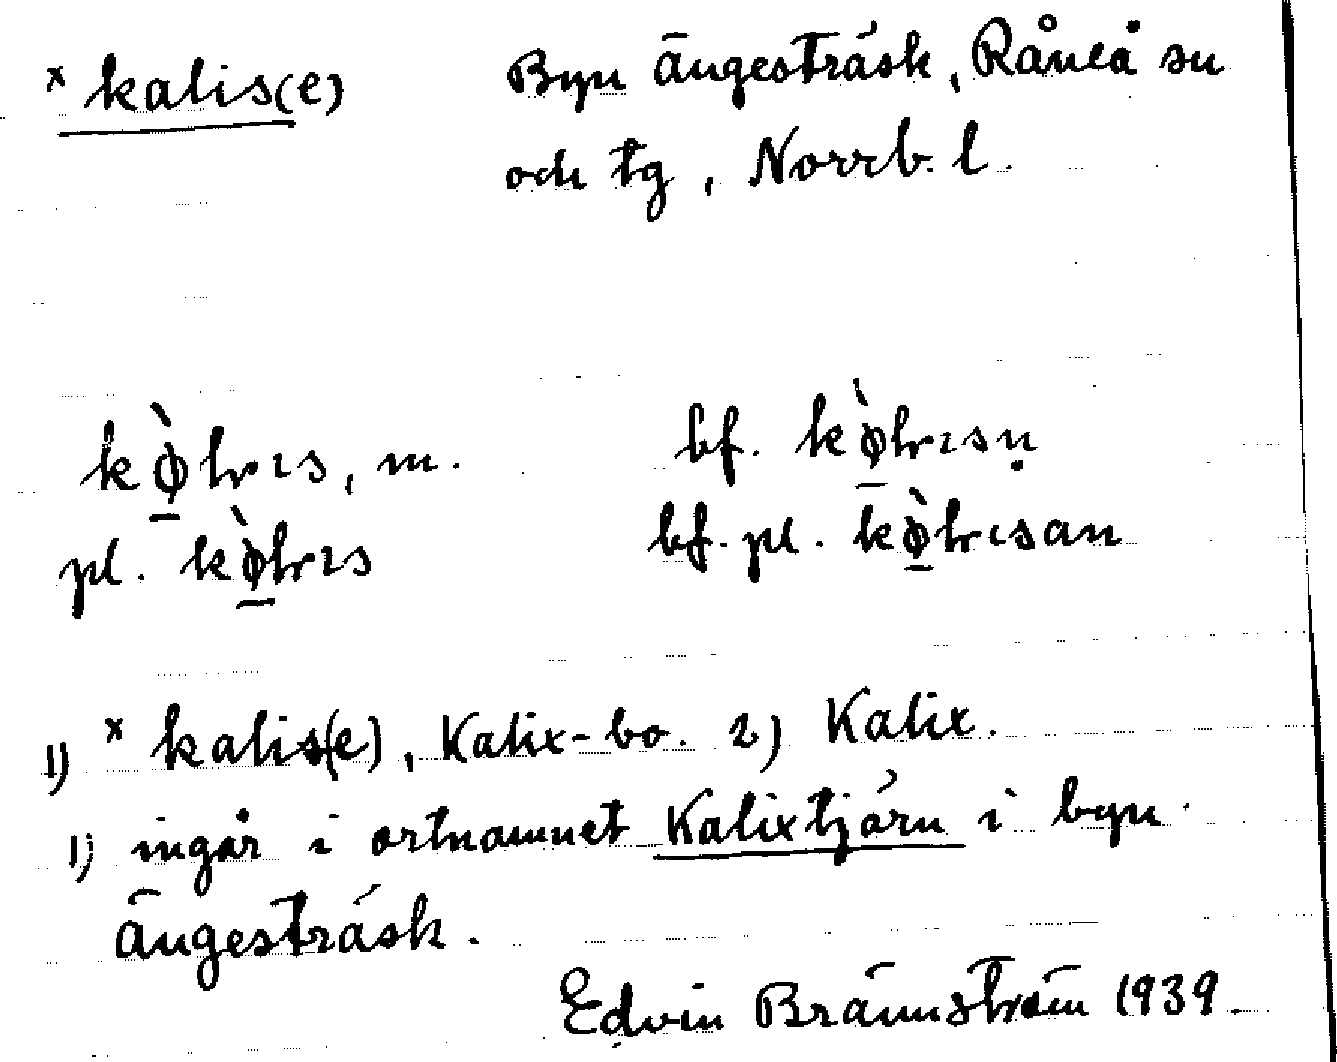 × kalis(e) Byn Ängesträsk, Råneå sn
och tg, Norrb. l.
kø̱̀lıs, m. bf. kø̱̀lısṇ
pl. kø̱̀lıs bf. pl. kø̱̀lısan
1) × kalis(e), Kalix-bo. 2) Kalix.
1) ingår i ortnamnet Kalixtjärn i byn
Ängesträsk.
Edvin Brännström 1939